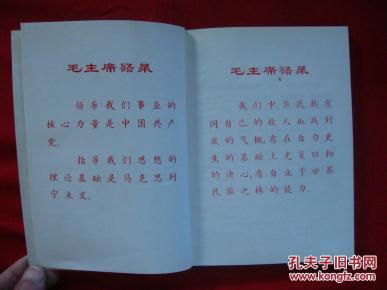 毛主席语录
领导我们事业的
核心力量是中国共产
党。
指导我们思想的
理论基础是马克思列
宁主义。
毛主席语录
我们中华民族有
同自己的敌人血战到
底的气概，有在自力更
生的基础上光复旧物
的决心，有自立于世界
民族之林的能力。
孔夫子旧书网